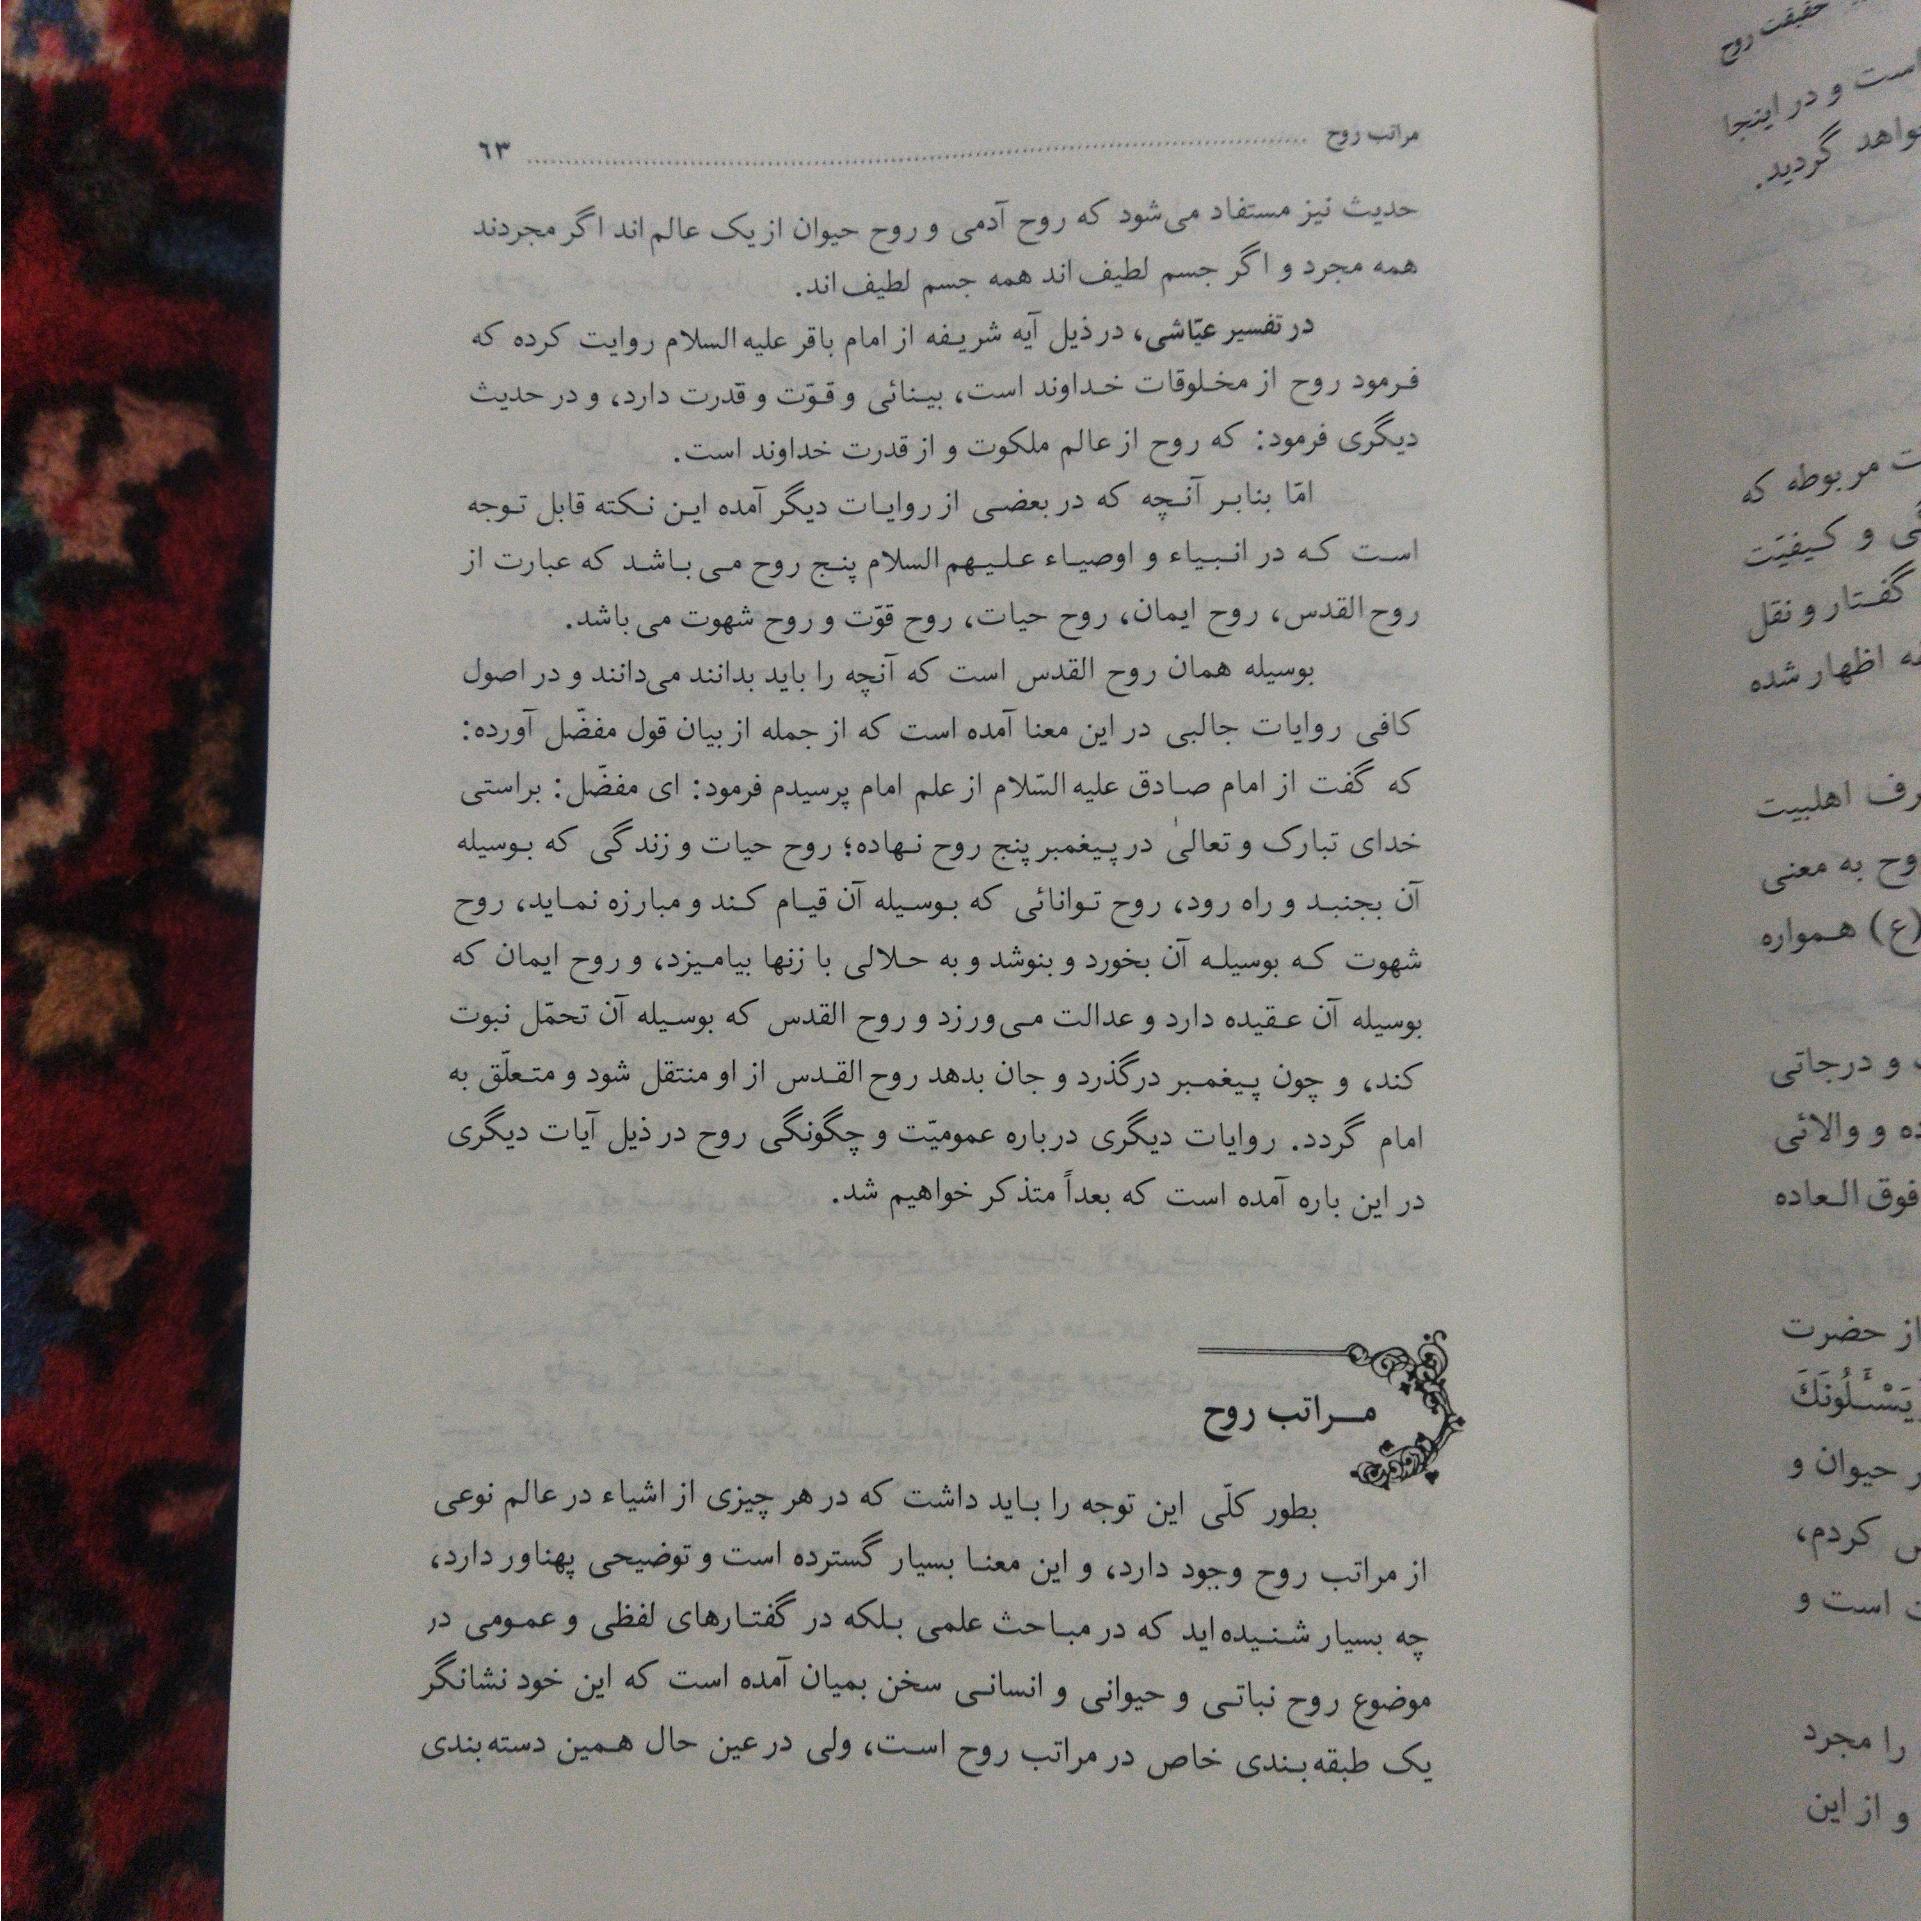 مراتب روح ........................ ٦٣
حدیث نیز مستفاد می‌شود که روح آدمی و روح حیوان از یک عالم اند اگر مجردند
همه مجرد و اگر جسم لطیف اند همه جسم لطیف اند.
در تفسیر عیّاشی، در ذیل آیه شریفه از امام باقر علیه السلام روایت کرده که
فرمود روح از مخلوقات خداوند است، بینائی و قوّت و قدرت دارد، و در حدیث
دیگری فرمود: که روح از عالم ملکوت و از قدرت خداوند است.
امّا بنابر آنچه که در بعضی از روایات دیگر آمده این نکته قابل توجه
است که در انبیاء و اوصیاء علیهم السلام پنج روح می باشد که عبارت از
روح القدس، روح ایمان، روح حیات، روح قوّت و روح شهوت می باشد.
بوسیله همان روح القدس است که آنچه را باید بدانند می‌دانند و در اصول
کافی روایات جالبی در این معنا آمده است که از جمله از بیان قول مفضّل آورده:
که گفت از امام صادق علیه السّلام از علم امام پرسیدم فرمود: ای مفضّل: براستی
خدای تبارک و تعالیٰ در پیغمبر پنج روح نهاده؛ روح حیات و زندگی که بوسیله
آن بجنبد و راه رود، روح توانائی که بوسیله آن قیام کند و مبارزه نماید، روح
شهوت که بوسیله آن بخورد و بنوشد و به حلالی با زنها بیامیزد، و روح ایمان که
بوسیله آن عقیده دارد و عدالت می‌ورزد و روح القدس که بوسیله آن تحمّل نبوت
کند، و چون پیغمبر درگذرد و جان بدهد روح القدس از او منتقل شود و متعلّق به
امام گردد. روایات دیگری درباره عمومیّت و چگونگی روح در ذیل آیات دیگری
در این باره آمده است که بعداً متذکر خواهیم شد.
مراتب روح
بطور کلّی این توجه را باید داشت که در هر چیزی از اشیاء در عالم نوعی
از مراتب روح وجود دارد، و این معنا بسیار گسترده است و توضیحی پهناور دارد،
چه بسیار شنیده اید که در مباحث علمی بلکه در گفتارهای لفظی و عمومی در
موضوع روح نباتی و حیوانی و انسانی سخن بمیان آمده است که این خود نشانگر
یک طبقه بندی خاص در مراتب روح است، ولی در عین حال همین دسته بندی
حقیقت روح
است و در اینجا
خواهد گردید.
مربوطه که
و کیفیّت
گفتار و نقل
اظهار شده
اهلبیت
روح به معنی
(ع) همواره
و درجاتی
و والائی
فوق العاده
از حضرت
یَسْئَلُونَكَ
حیوان و
کردم،
است و
را مجرد
و از این